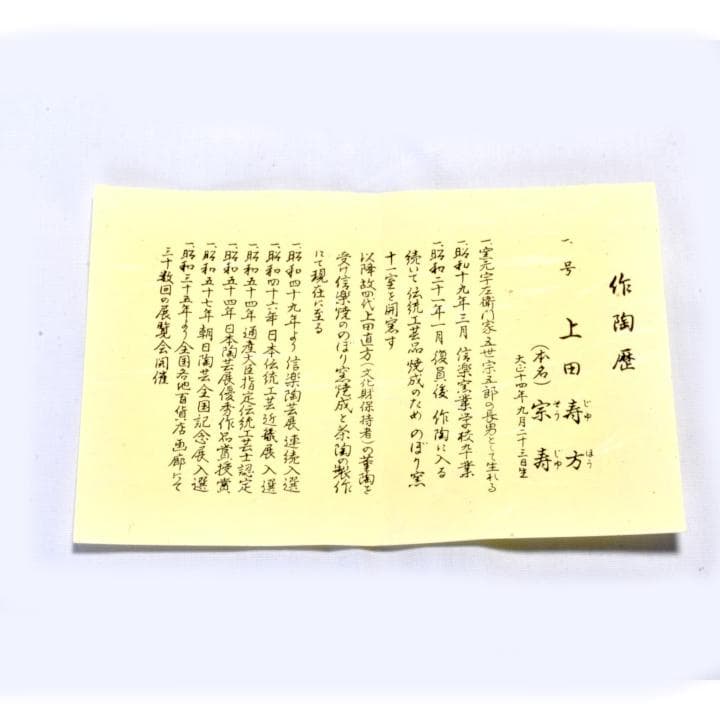 作陶歴
一、号 上田寿方
じゅ ほう
(本名) 宗寿
そう じゅ
大正十四年九月二十三日生
一、窯元宇左衛門家五世宗五郎の長男として生れる
一、昭和十九年三月 信楽窯業学校卒業
一、昭和二十一年一月 復員後 作陶に入る
続いて伝統工芸品焼成のため のぼり窯
十一室を開窯す
以降故四代上田直方(文化財保持者)の薫陶を
受け信楽焼ののぼり窯焼成と茶陶の製作
にて現在に至る
一、昭和四十九年より 信楽陶芸展 連続入選
一、昭和四十六年 日本伝統工芸近畿展 入選
一、昭和五十四年 通産大臣指定伝統工芸士認定
一、昭和五十四年 日本陶芸展優秀作品賞授賞
一、昭和五十七年 朝日陶芸全国記念展入選
一、昭和三十五年より全国各地百貨店 画廊にて
三十数回の展覧会開催